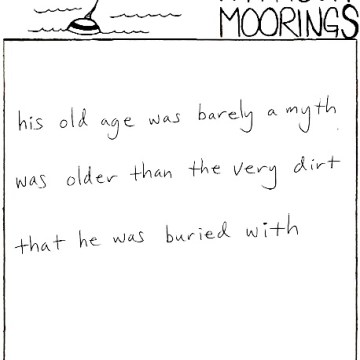 MOORINGS
his old age was barely a myth
was older than the very dirt
that he was buried with